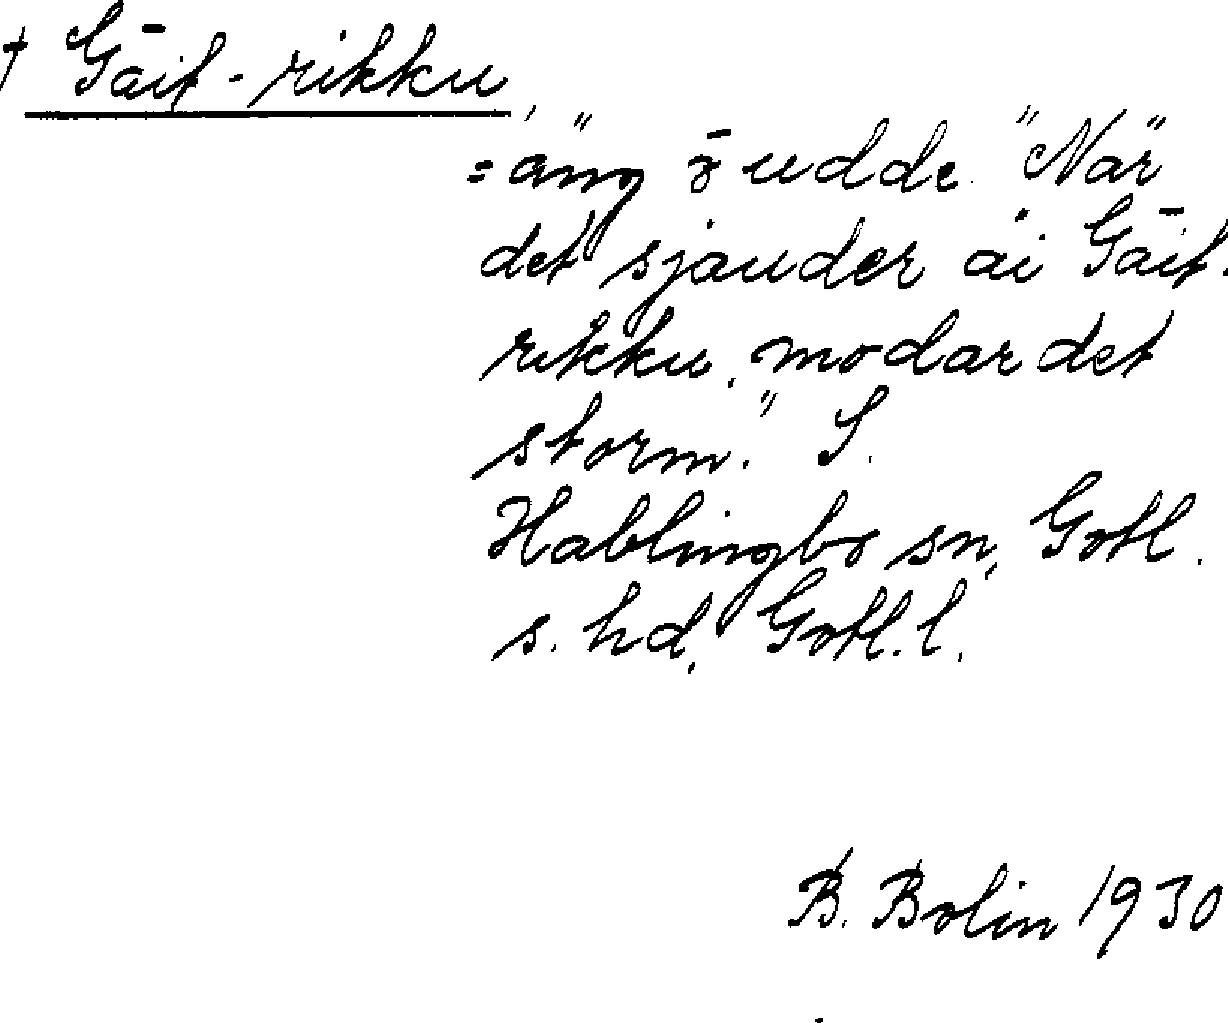 † Gāit-rikku,
= äng o udde. "När
det sjauder äi Gāit-
rikku, modar det
storm." S.
Hablingbo sn, Gotl.
s. hd, Gotl. l.
B. Bolin 1930